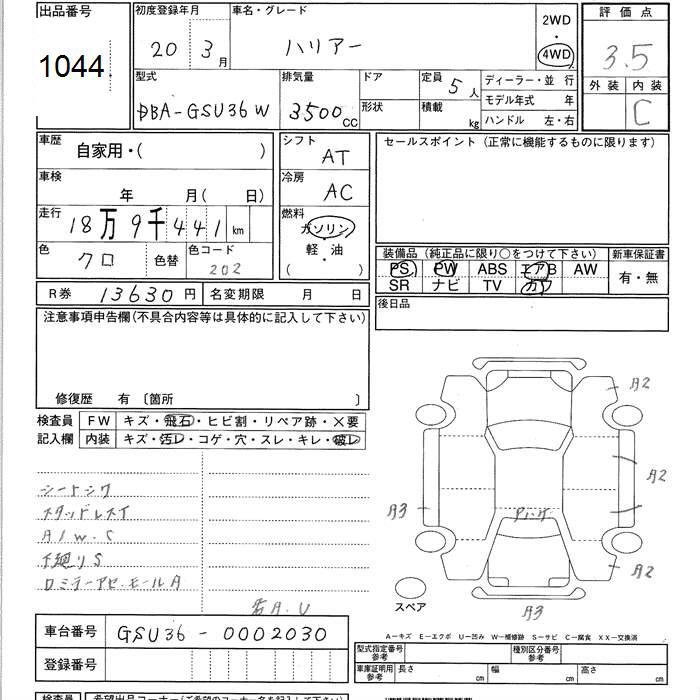 出品番号
1044
初度登録年月
20 年 3 月
車名・グレード
ハリアー
2WD
・
4WD
評価点
3.5
外装 内装
C
型式
DBA-GSU36W
排気量
3500 CC
ドア
形状
定員 5 人
積載 kg
ディーラー・並 行
モデル年式 年
ハンドル 左・右
車歴
自家用・( )
車検
年 月( 日)
走行
18万9千441 km
色
クロ
色替
色コード
202
シフト
AT
冷房
AC
燃料
ガソリン
軽・油
( )
セールスポイント(正常に機能するものに限ります)
装備品(純正品に限り○をつけて下さい)
新車保証書
PS PW ABS エアB AW
SR ナビ TV カワ
有・無
後日品
R券 13630 円
名変期限 月 日
注意事項申告欄(不具合内容等は具体的に記入して下さい)
修復歴 有 〔箇所 〕
検査員
記入欄
FW キズ・飛石・ヒビ割・リペア跡・×要
内装 キズ・汚レ・コゲ・穴・スレ・キレ・破レ
シートシワ
スタッドレスT
A/W.C
下廻りS
A2
A2
A2
A3
A3
スペア
A-キズ E-エクボ U-凹み W-補修跡 S-サビ C-腐食 XX-交換済
車台番号
GSU36-0002030
登録番号
型式指定番号
参考
種別区分番号
参考
車庫証明用
参考
長さ cm
幅 cm
高さ cm
検査員
希望出品コーナー(ご希望のコーナー名を記入して下さい)